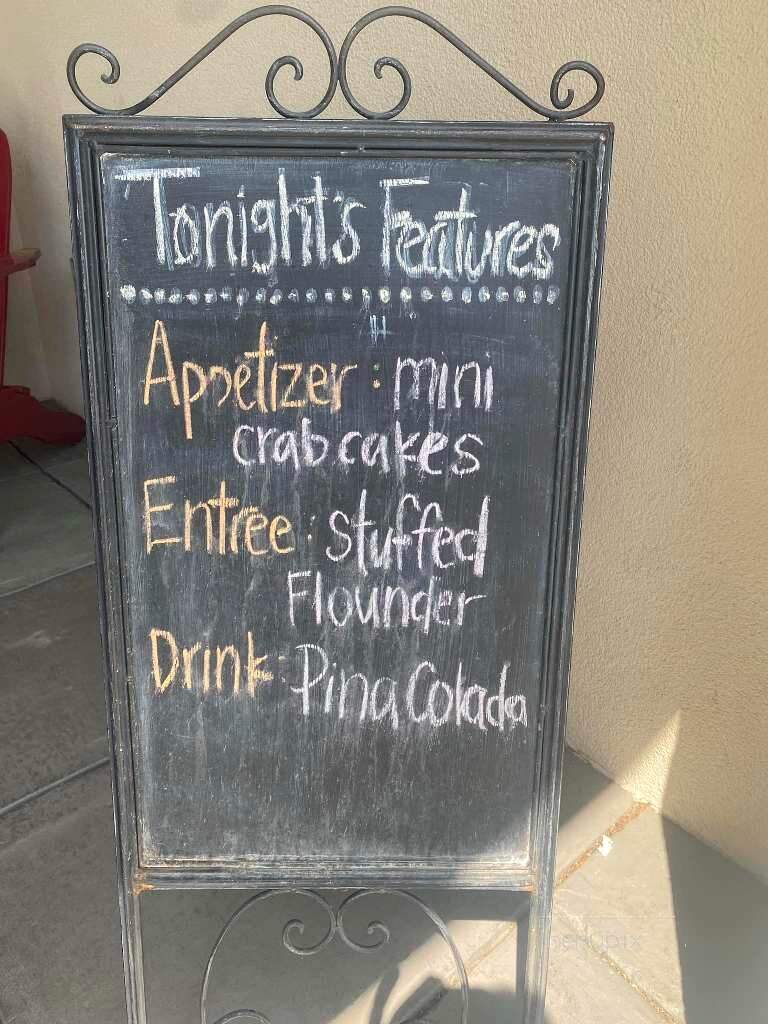 Tonight's Features
Appetizer: mini
crab cakes
Entree: Stuffed
Flounder
Drink: Pina Colada